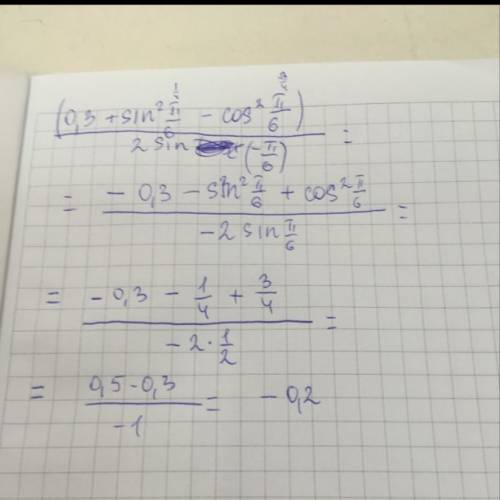 (0,3 + sin² π/6 - cos² π/6) / 2 sin (-π/6) =
= - 0,3 - sin² π/6 + cos² π/6 / -2 sin π/6 =
= - 0,3 - 1/4 + 3/4 / - 2 · 1/2 =
= 0,5 - 0,3 / -1 = - 0,2